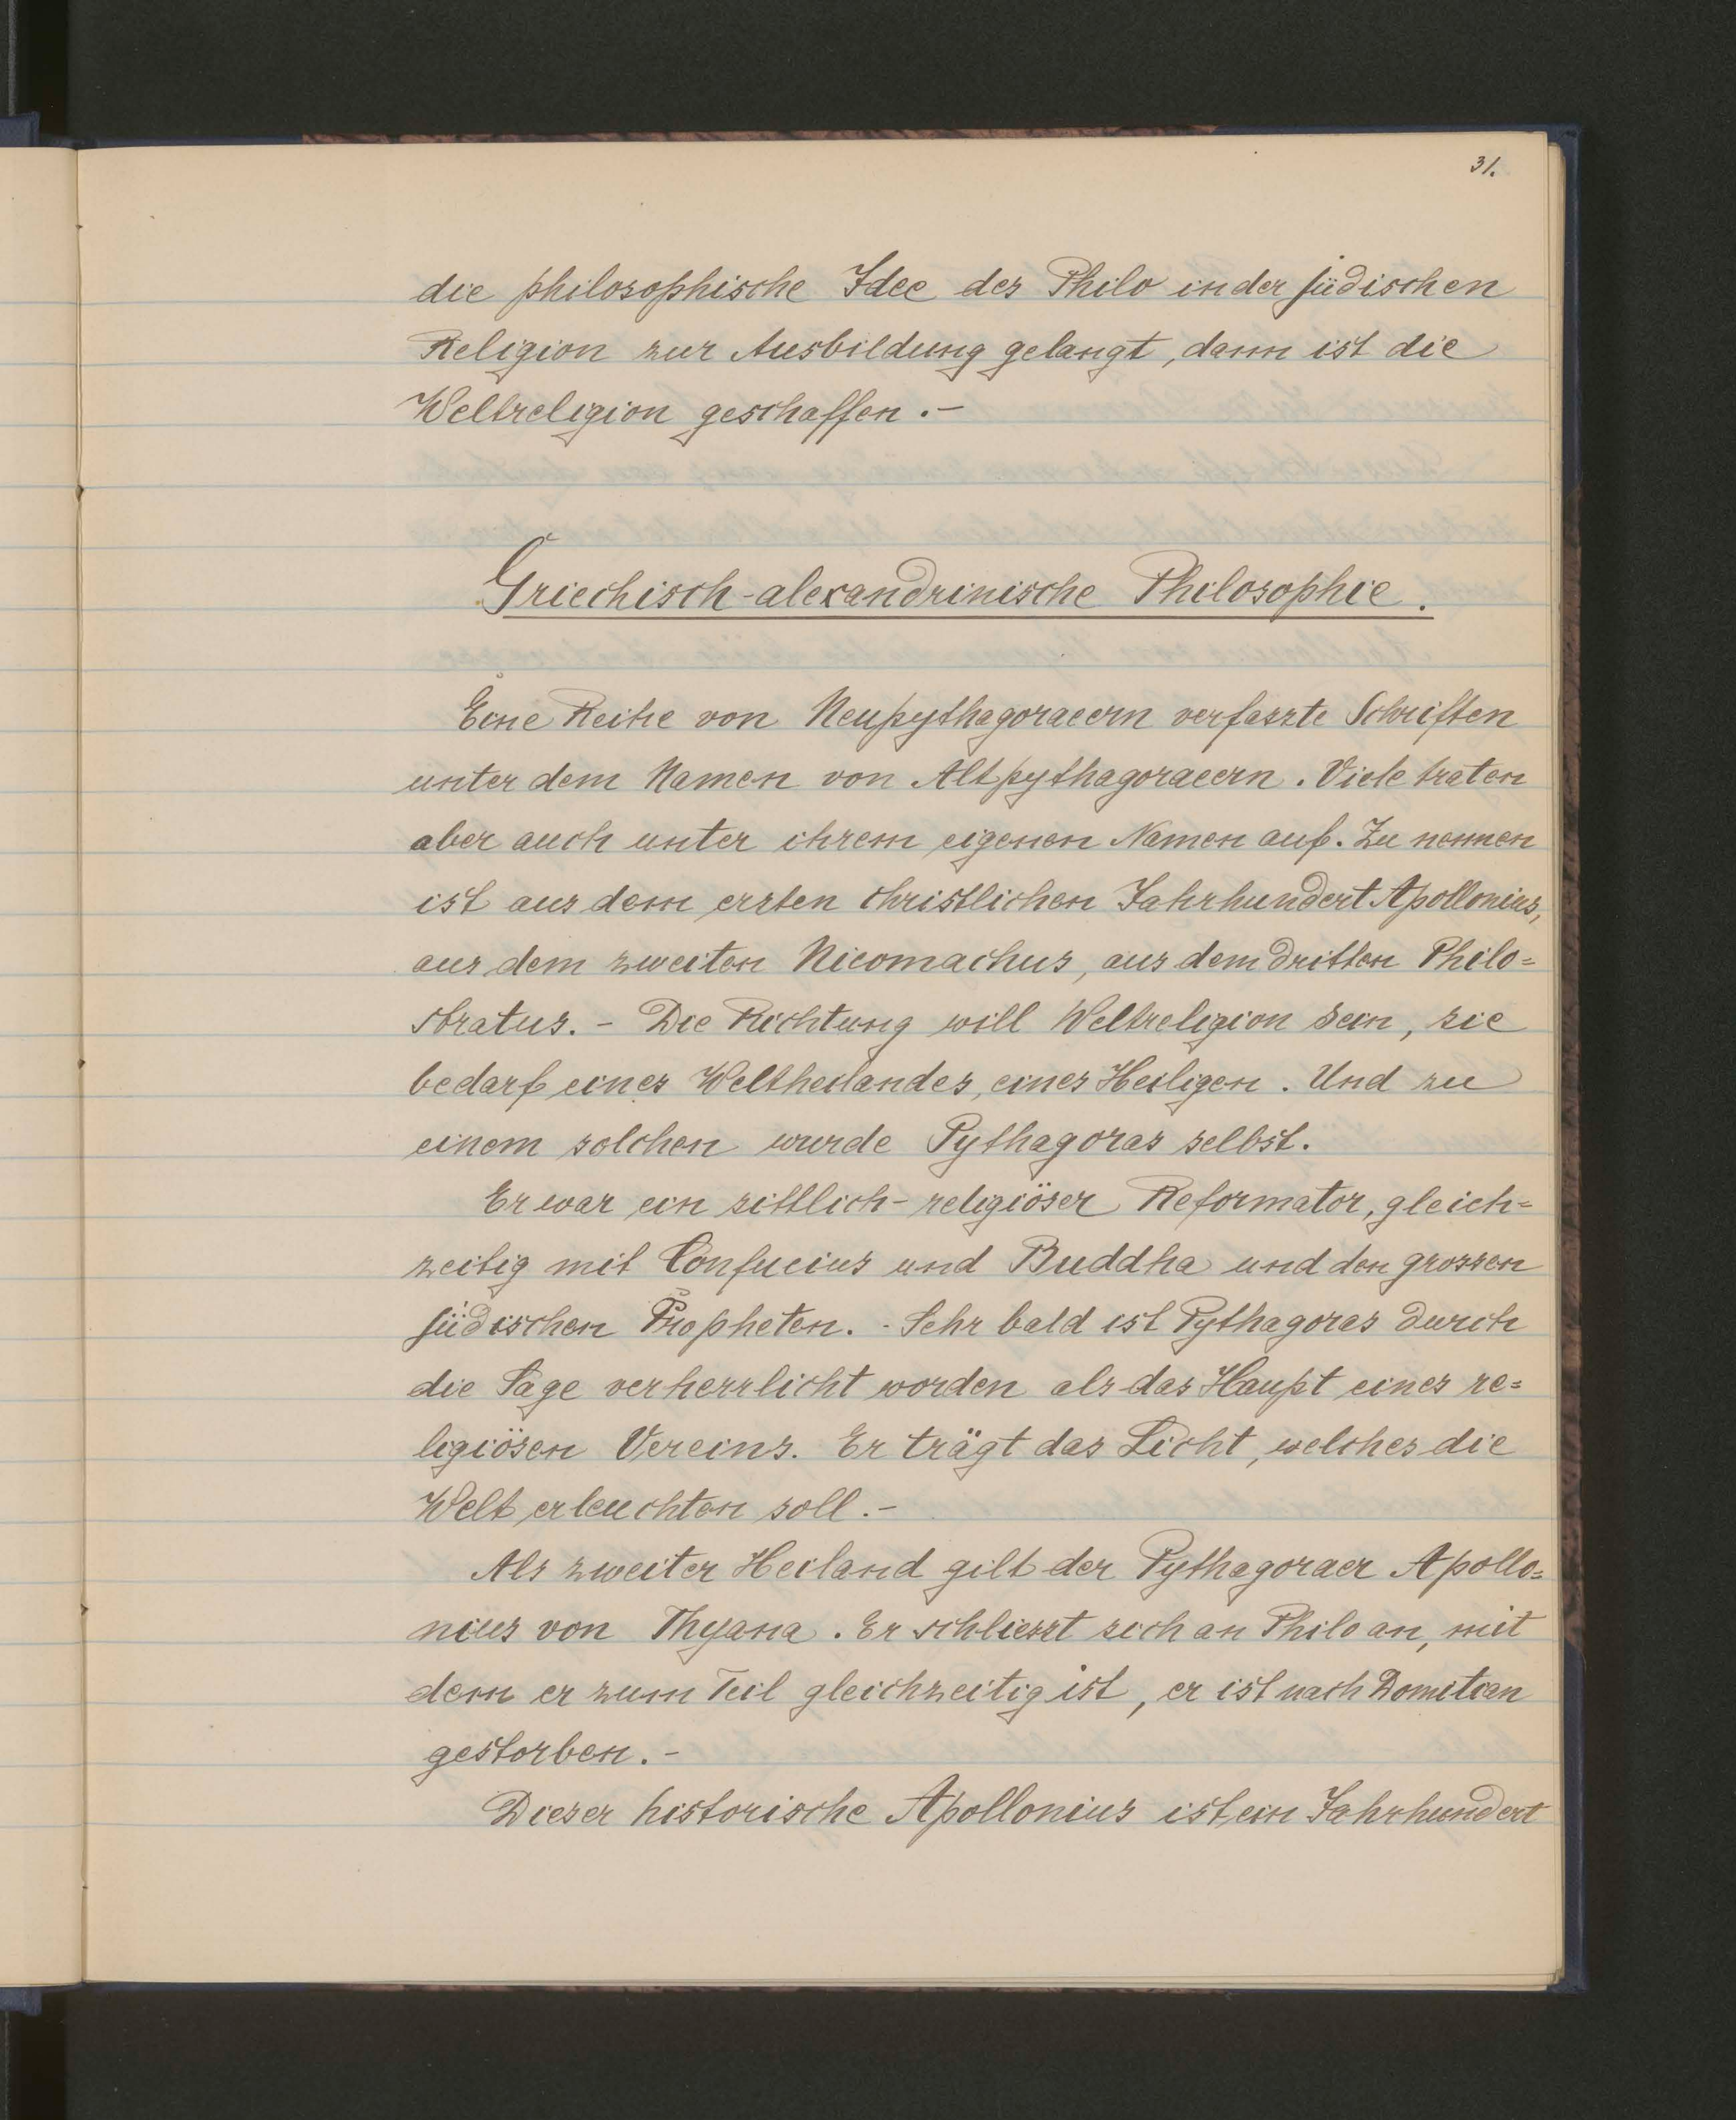 31.
die philosophische Idee des Philo in der jüdischen
Religion zur Ausbildung gelangt, dann ist die
Weltreligion geschaffen. -
Griechisch-alexandrinische Philosophie.
Eine Reihe von Neupythagoraeern verfasste Schriften
unter dem Namen von Altpythagoraeern. Viele traten
aber auch unter ihrem eigenen Namen auf. Zu nennen
ist aus dem ersten christlichen Jahrhundert Apollonius,
aus dem zweiten Nicomachus, aus dem dritten Philo=
stratus. - Die Richtung will Weltreligion sein, sie
bedarf eines Weltheilandes, eines Heiligen. Und zu
einem solchen wurde Pythagoras selbst.
Er war ein sittlich-religiöser Reformator, gleich=
zeitig mit Confucius und Buddha und den grossen
jüdischen Propheten. - Sehr bald ist Pythagoras durch
die Sage verherrlicht worden als das Haupt eines re=
ligiösen Vereins. Er trägt das Licht, welches die
Welt erleuchten soll. -
Als zweiter Heiland gilt der Pythagoraer Apollo=
nius von Thyana. Er schliesst sich an Philo an, mit
dem er zum Teil gleichzeitig ist, er ist nach Domitian
gestorben. -
Dieser historische Apollonius ist ein Jahrhundert